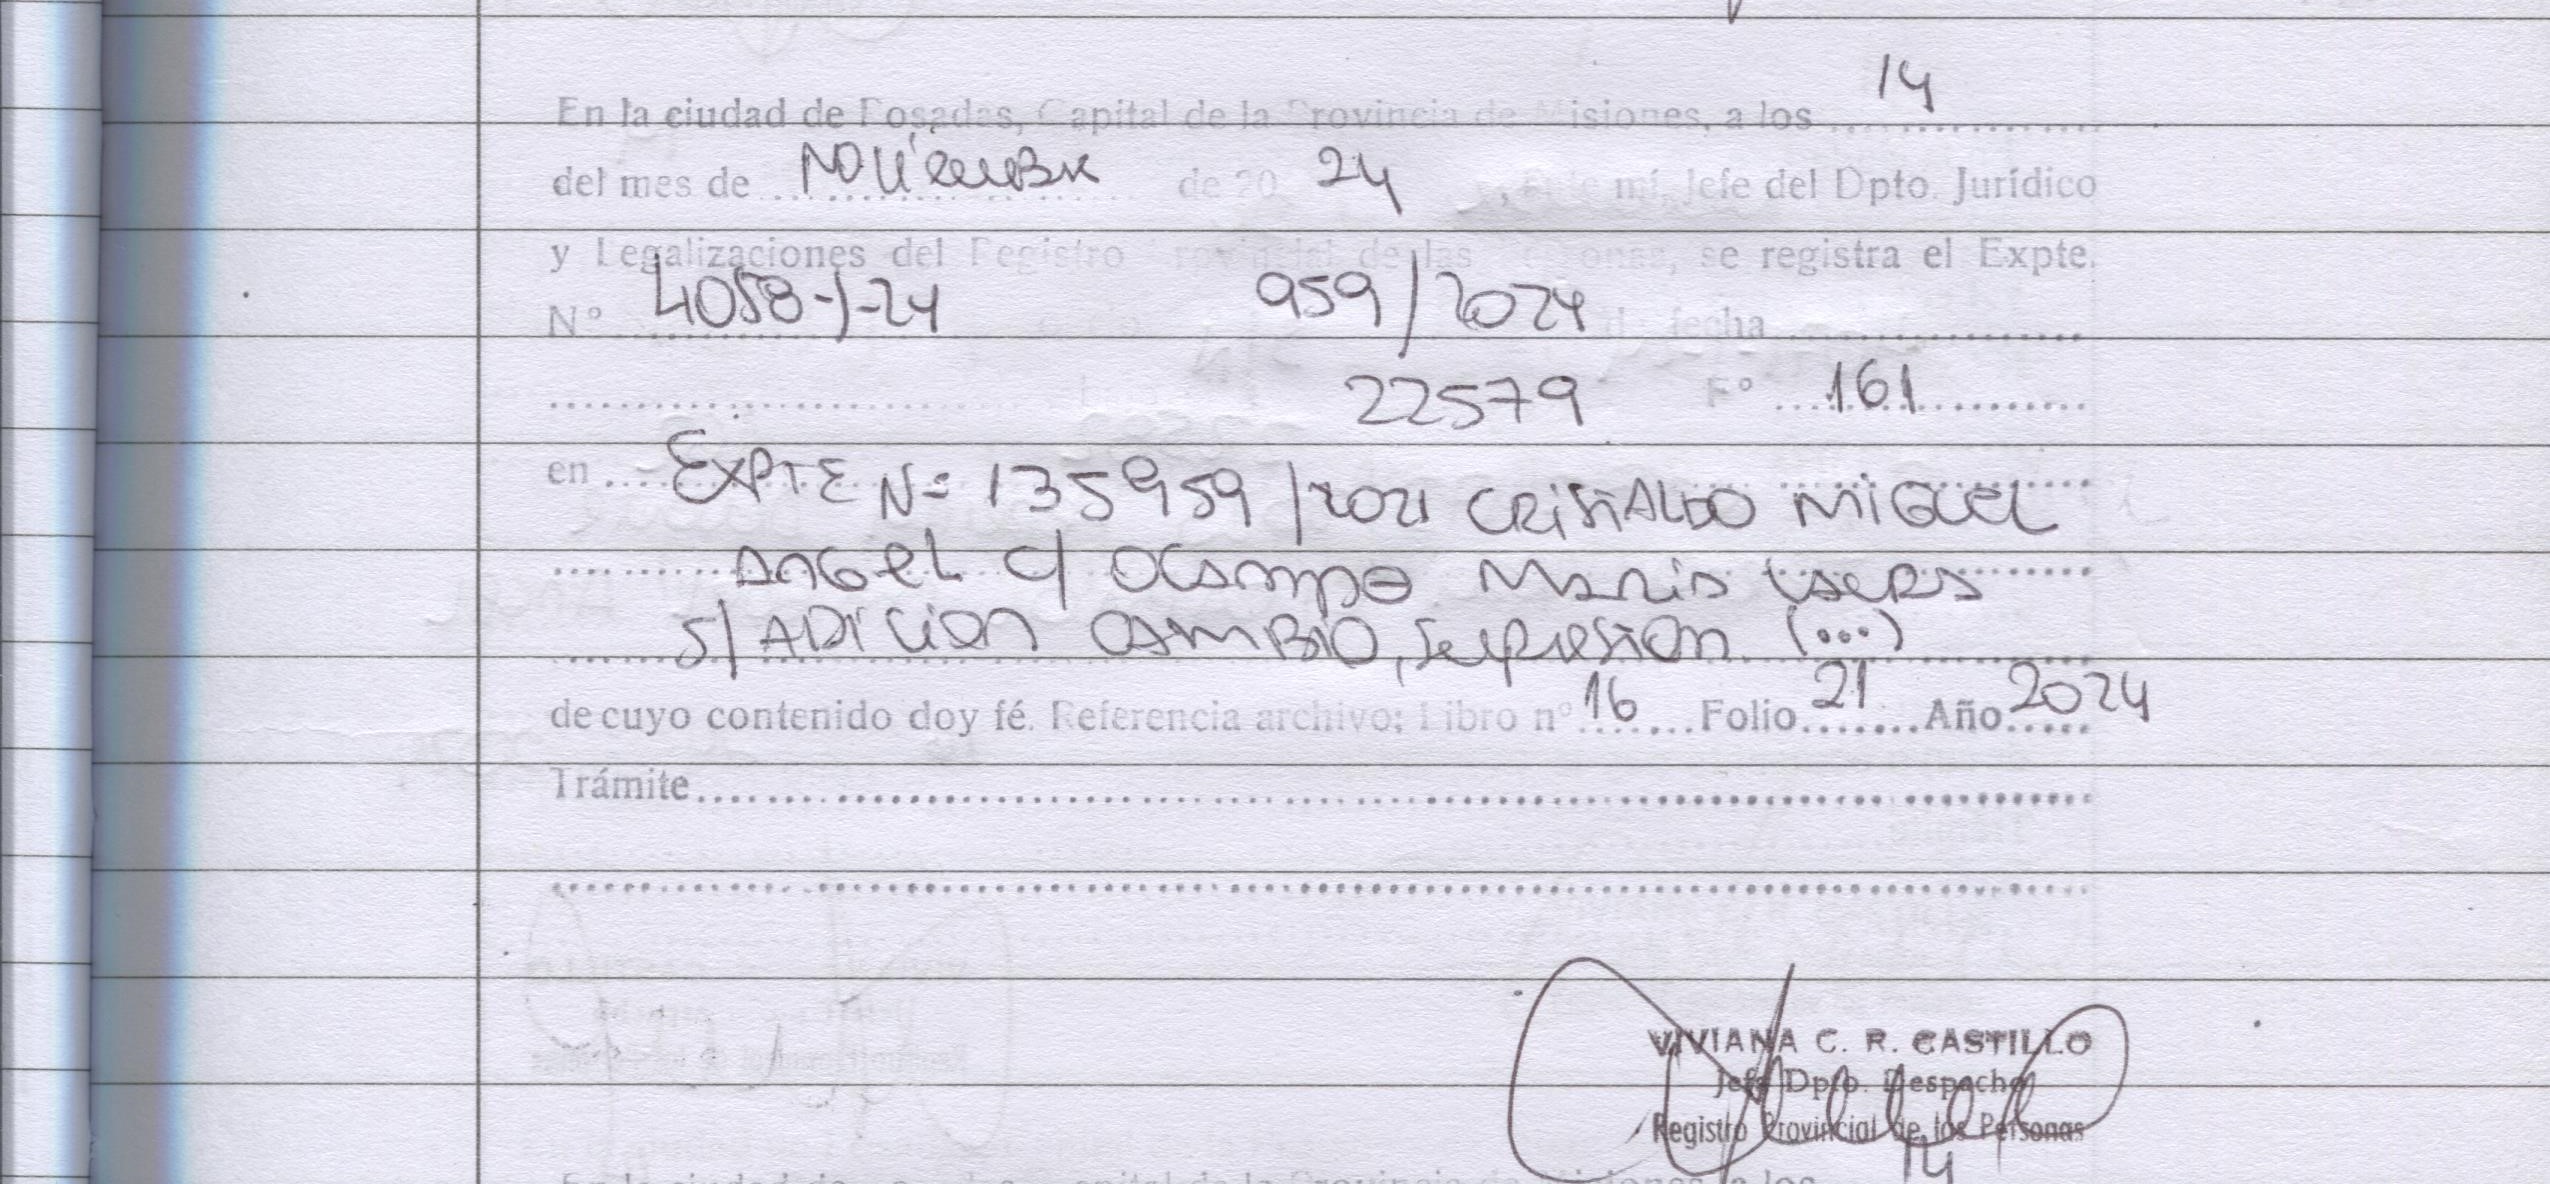 14
En la ciudad de Posadas, Capital de la Provincia de Misiones, a los ..............
del mes de Noviembre de 20 24, ante mí, Jefe del Dpto. Jurídico
y Legalizaciones del Registro Provincial de las Personas, se registra el Expte.
N° 4058-J-24 959/2024 de fecha ..............
22579 F° 161
en EXPTE N= 135959/2021 CRISTALDO MIGUEL
ANGEL c/ OCAMPO Maria
S/ ADICION CAMBIO, Supresion (...)
de cuyo contenido doy fé. Referencia archivo: Libro n° 16 Folio 21 Año 2024
Trámite..............
VIVIANA C. R. CASTILLO
Jefe Dpto. Despacho
Registro Provincial de los Personas
14